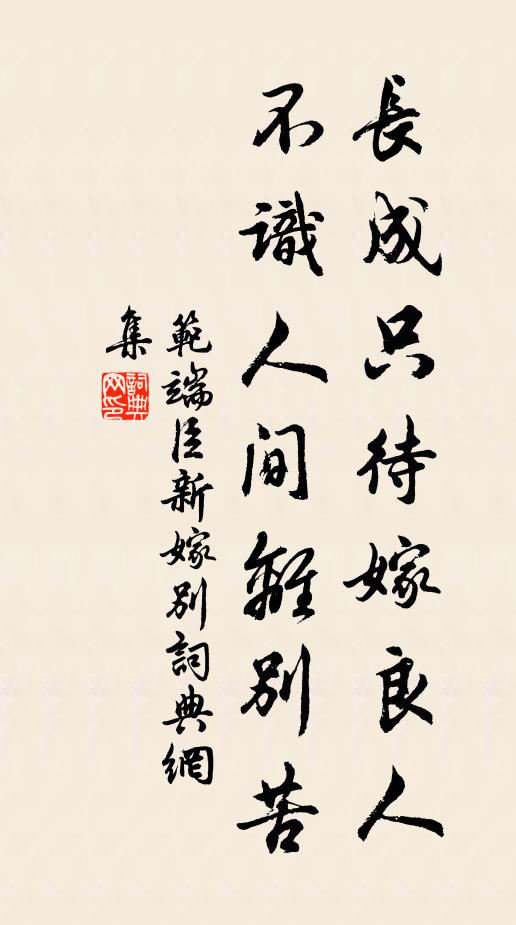 長成只待嫁良人
不識人間離別苦
範端臣新嫁別詞典網
集
詞典
网印